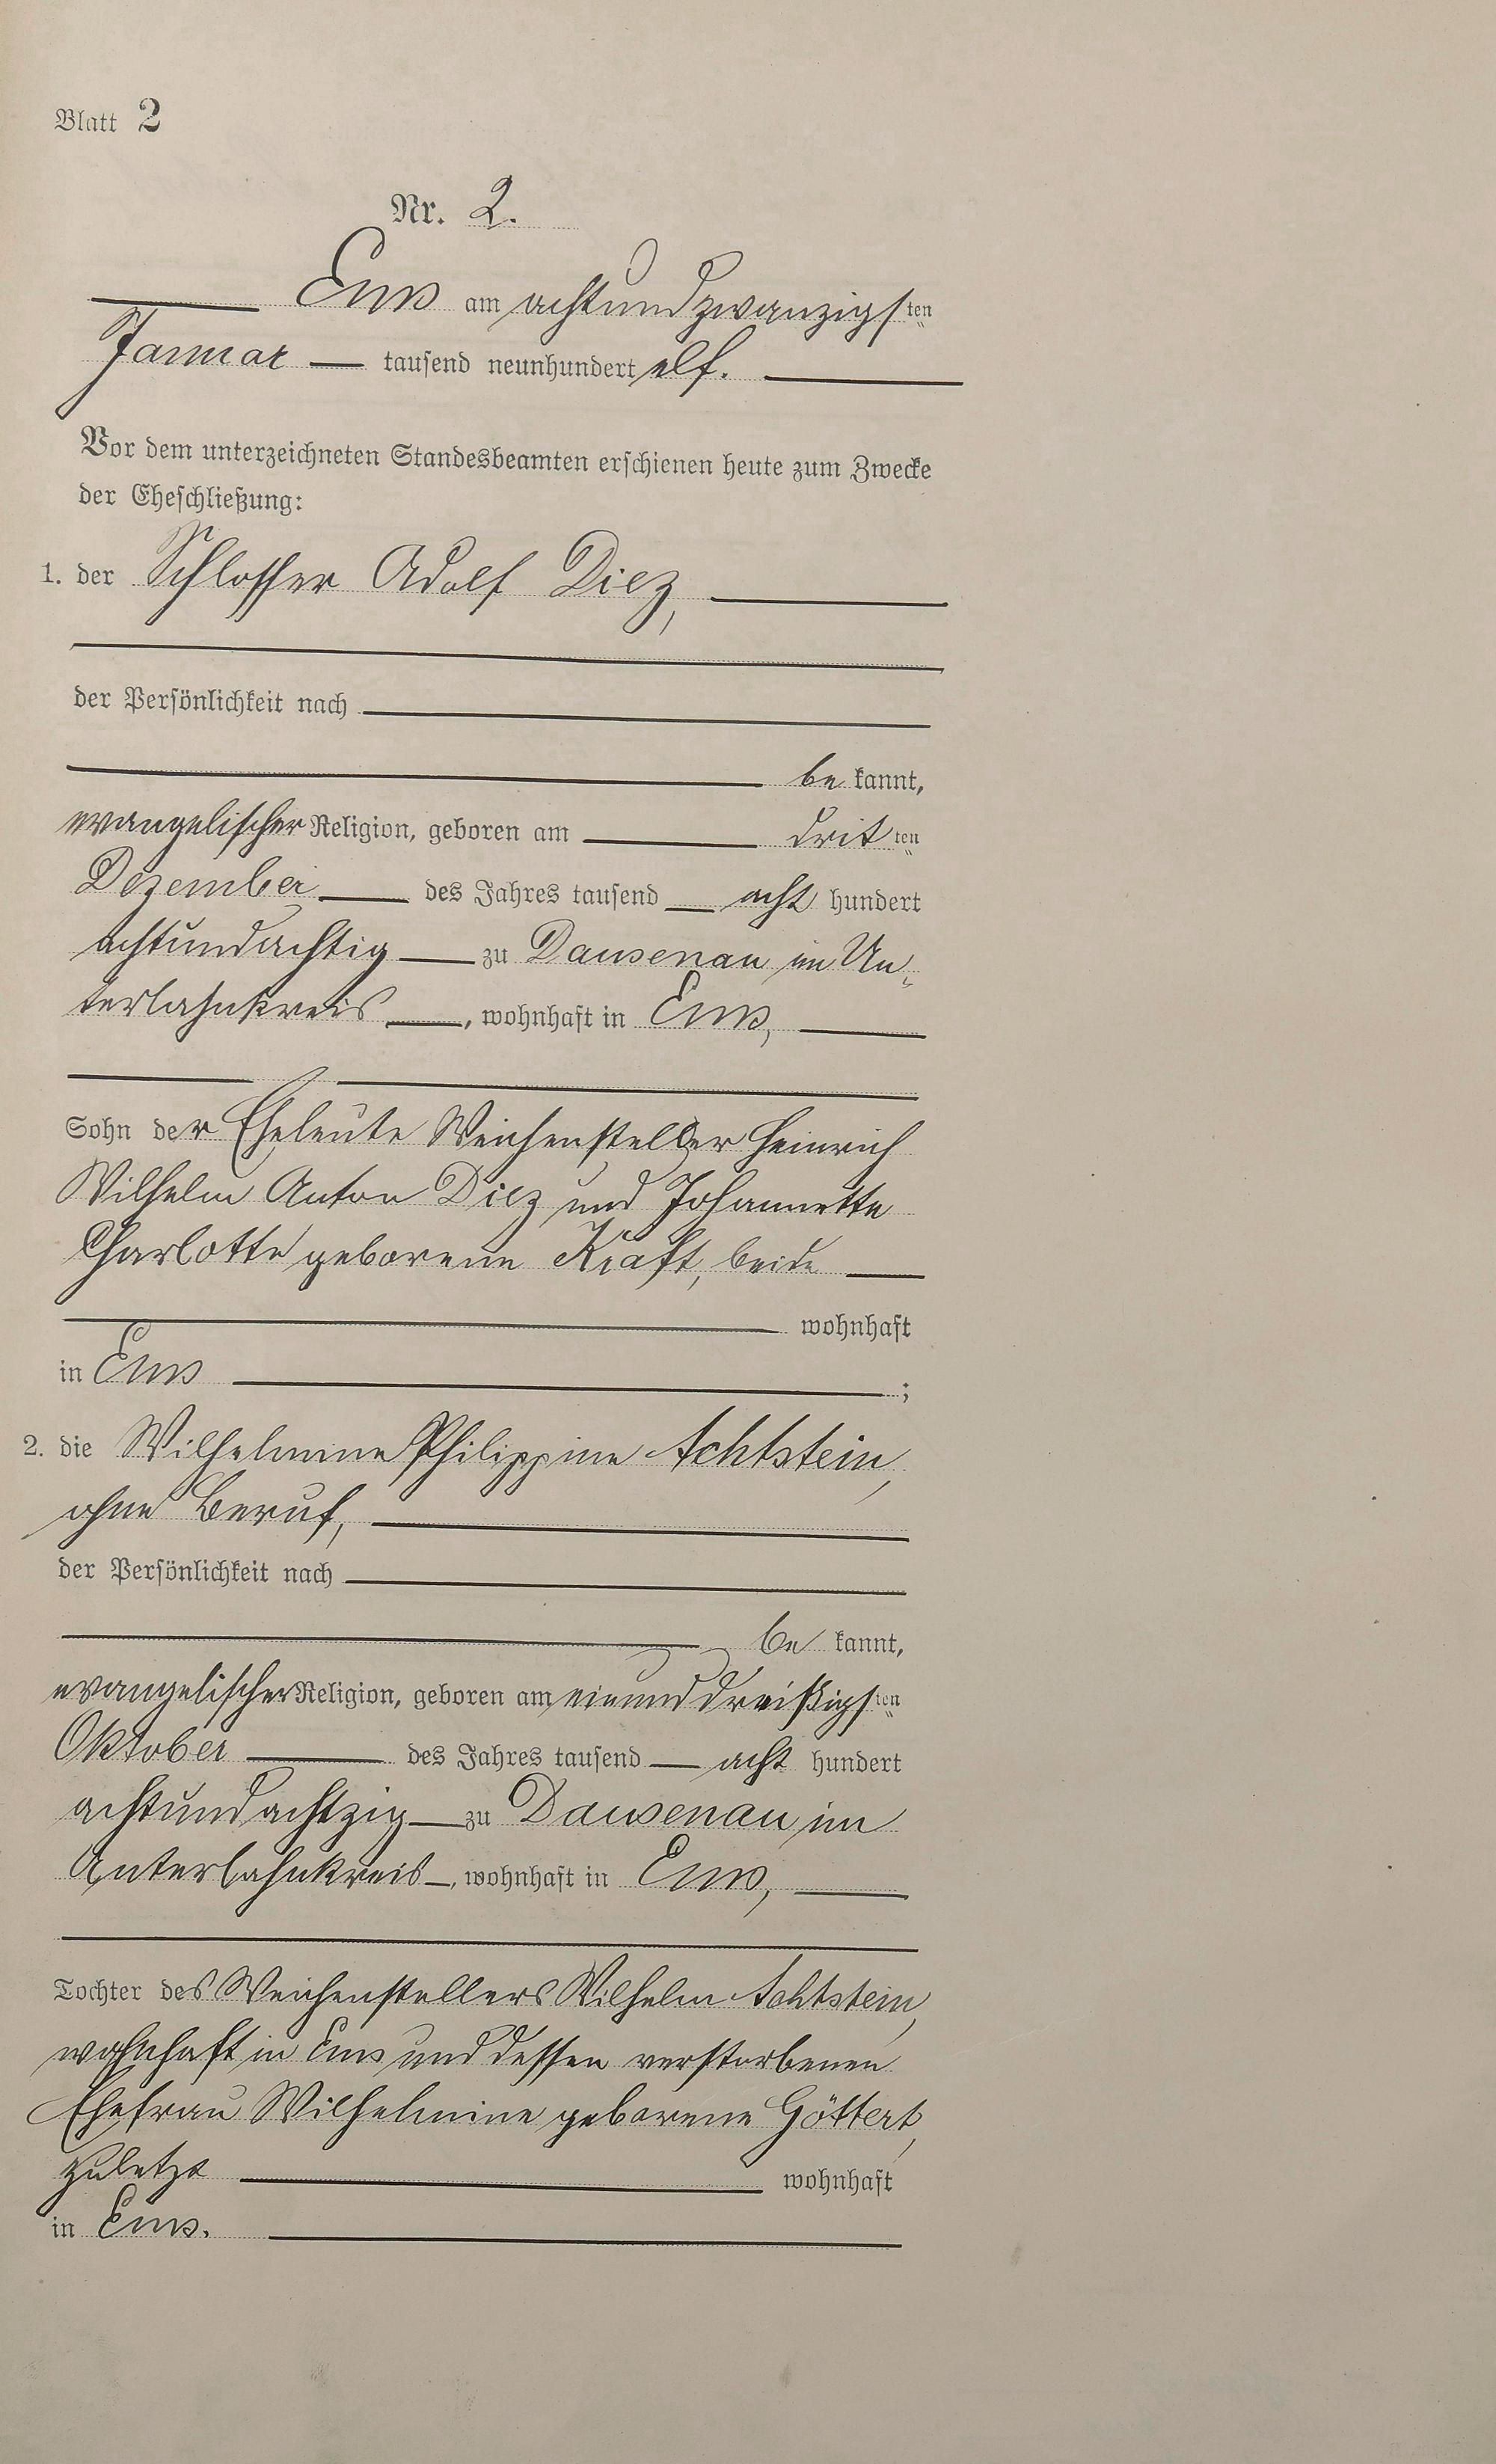 Blatt 2
Nr. 2.
Ems am achtundzwanzigsten
Januar tausend neunhundert elf.
Vor dem unterzeichneten Standesbeamten erschienen heute zum Zwecke
der Eheschließung:
1. der Schlosser Adolf Diez,
der Persönlichkeit nach
be kannt,
evangelischer Religion, geboren am dritten
Dezember des Jahres tausend acht hundert
achtundachtig zu Dausenau im Un-
terlahnkreis, wohnhaft in Ems,
Sohn der Eheleute Weichensteller Heinrich
Wilhelm Anton Diez und Johannette
Charlotte geborene Kraft, beide
wohnhaft
in Ems ;
2. die Wilhelmine Philippine Achtstein,
ohne Beruf,
der Persönlichkeit nach
be kannt,
evangelischer Religion, geboren am einunddreißigsten
Oktober des Jahres tausend acht hundert
achtundachtzig zu Dausenau im
Unterlahnkreis, wohnhaft in Ems,
Tochter des Weichenstellers Wilhelm Achtstein,
wohnhaft in Ems und dessen verstorbenen
Ehefrau Wilhelmine geborene Göttert,
zuletzt wohnhaft
in Ems.